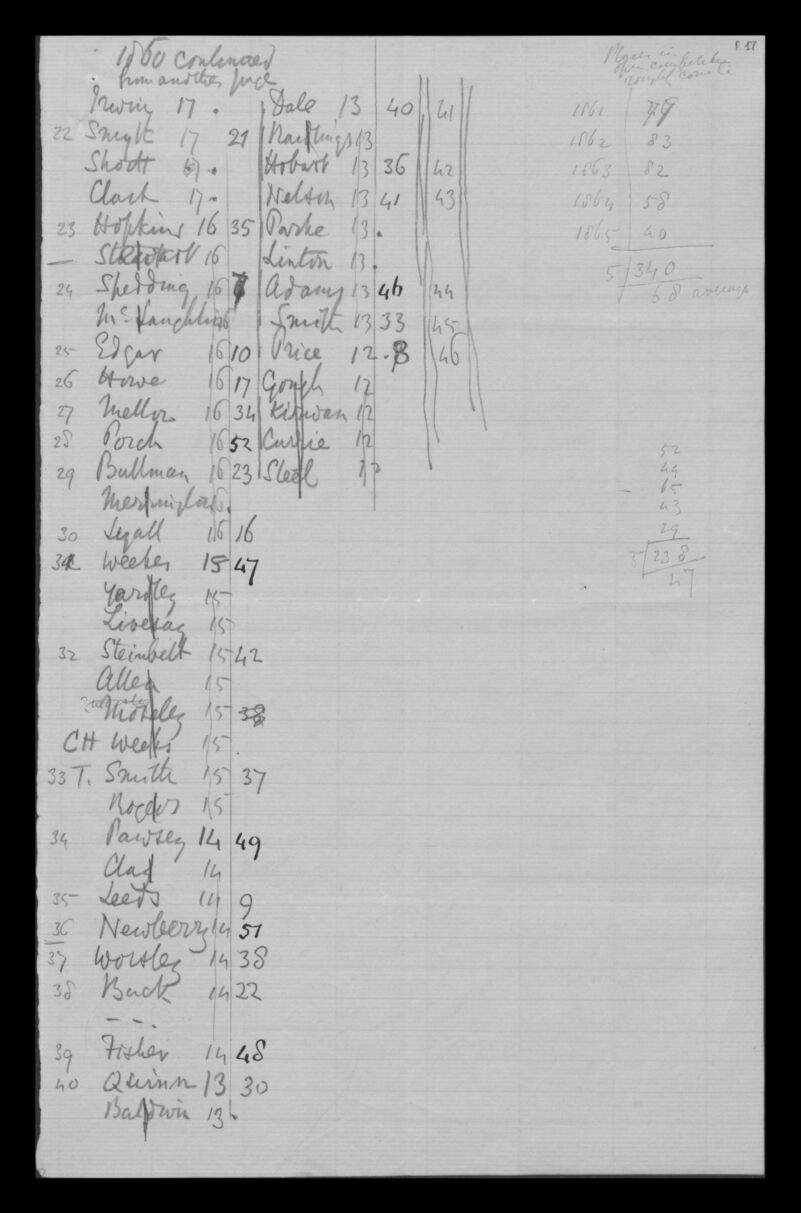 1860 continued
from another page
Irwin 17 .
22 Smyth 17 21
Shortt 17 .
Clark 17 .
23 Hopkins 16 35
— Stewart 16
24 Spedding 16
McLaughlin 16
25 Edgar 16 10
26 Howe 16 17
27 Mellor 16 34
28 Porch 16 52
29 Bullman 16 23
Merrington 16 .
30 Lyall 16 16
31 Weekes 15 47
Yardley 15
Livesay 15
32 Steinbelt 15 42
Allen 15
Moseley 15 38
CH Weeks 15 .
33 T. Smith 15 37
Rogers 15
34 Pawsey 14 49
Clad 14
35 Leeds 14 9
36 Newberry 14 51
37 Worsley 14 38
38 Buck 14 22
— — .
39 Fisher 14 48
40 Quinn 13 30
Baldwin 13 .
Dale 13 40 41
13
Hobart 13 36 42
Nelson 13 41 43
Parke 13 .
Linton 13 .
Adams 13 46 44
Smith 13 33 45
Price 12 . 8 46
Gough 12
Kirwan 12
Currie 12
Steel 12
Places in
open competition
rough count
1861 79
1862 83
1863 82
1864 58
1865 40
5 340
68 average
52
49
65
43
29
5 238
47